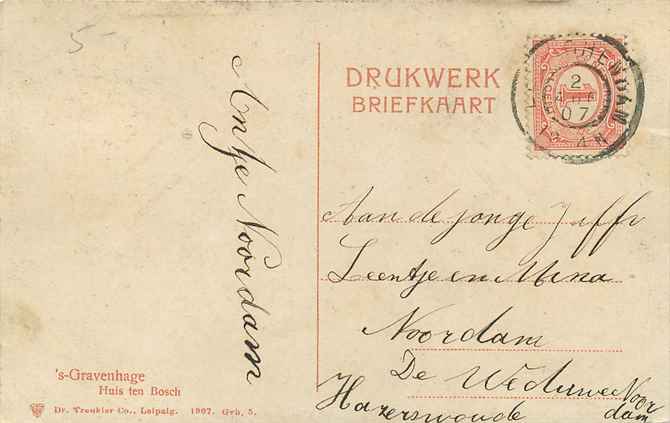 5-
Antje Noordam
DRUKWERK
BRIEFKAART
2
AUG
07
4 N
Aan de jonge Juffr
Leentje en Mina
Noordam
De Weduwe Noor
dam
Hazerswoude
's-Gravenhage
Huis ten Bosch
Dr. Trenkler Co., Leipzig. 1907. Grh, 5.